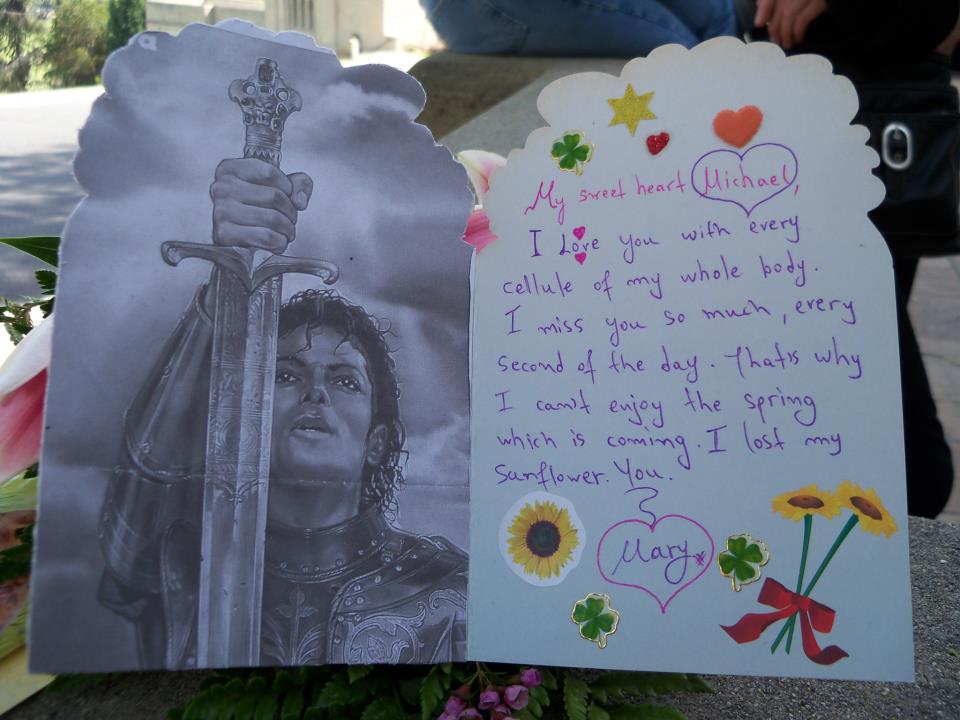 My sweet heart Michael,
I Love you with every
cellule of my whole body.
I miss you so much, every
second of the day. That's why
I can't enjoy the spring
which is coming. I lost my
Sunflower. You.
Mary